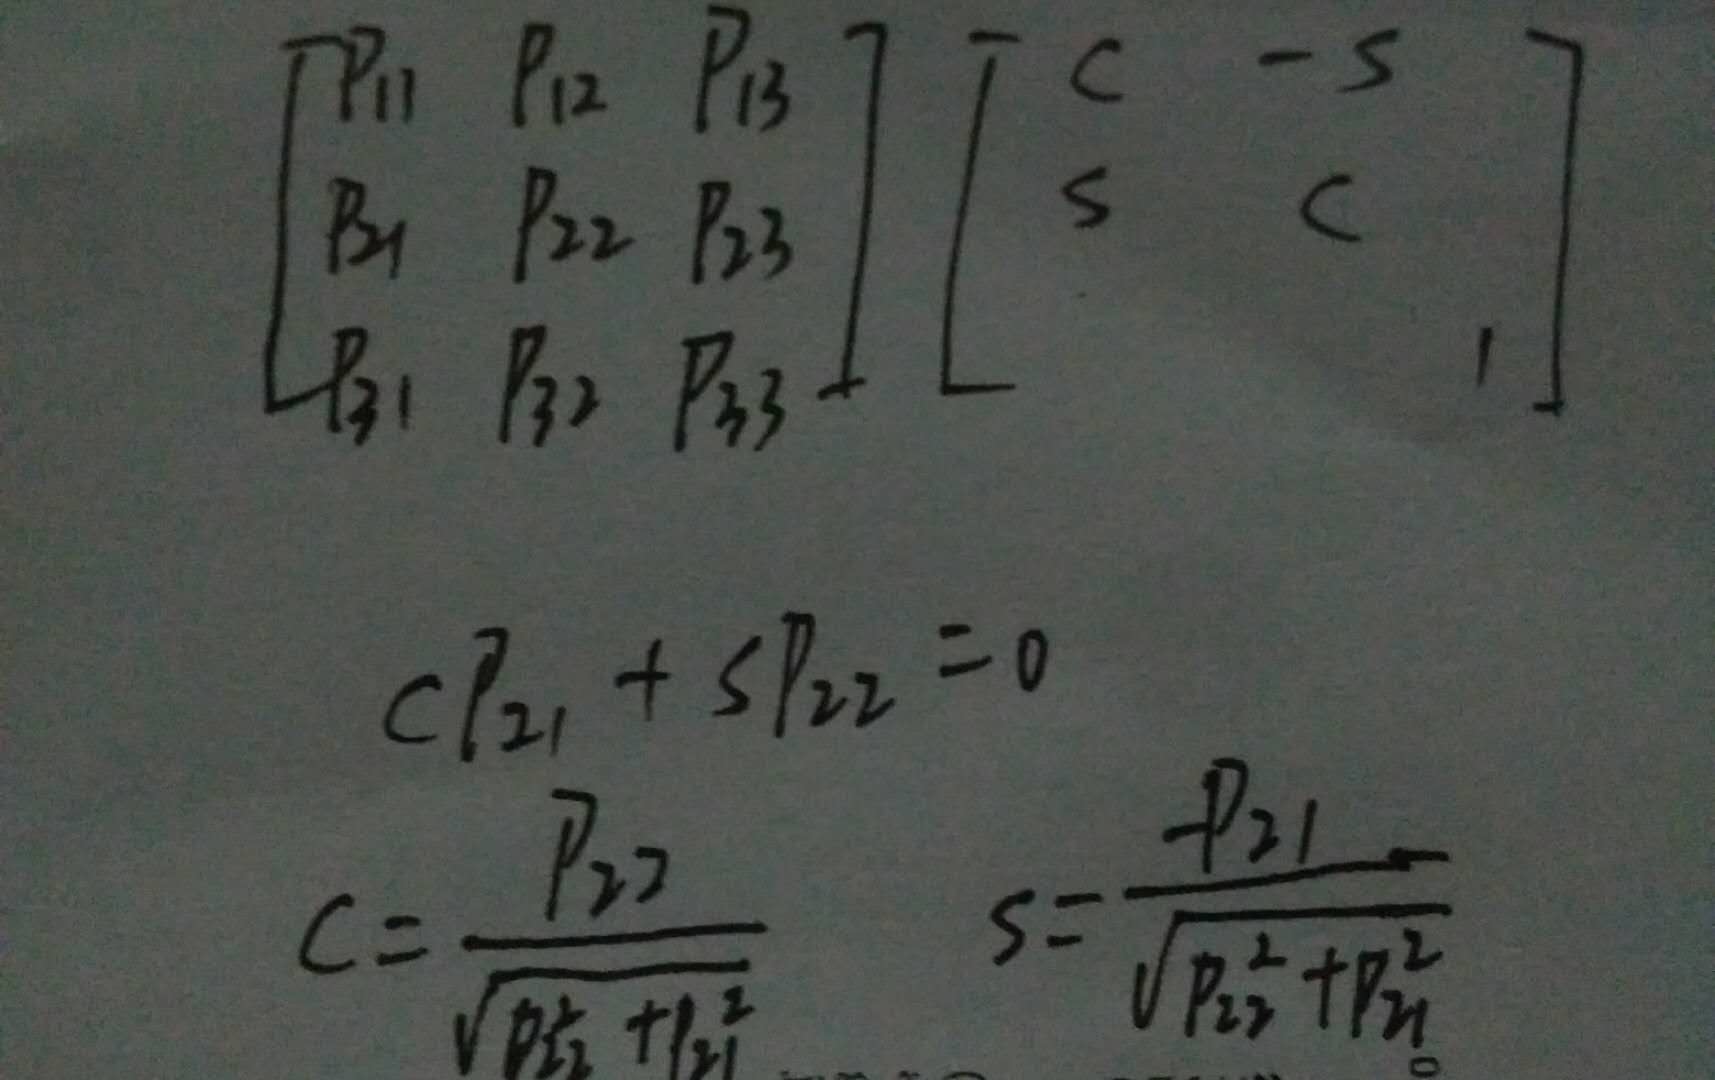 P11 P12 P13 C -S
P21 P22 P23 S C
P31 P32 P33 1
CP21 + SP22 = 0
C = P22 / √(P22² + P21²) S = -P21 / √(P22² + P21²)